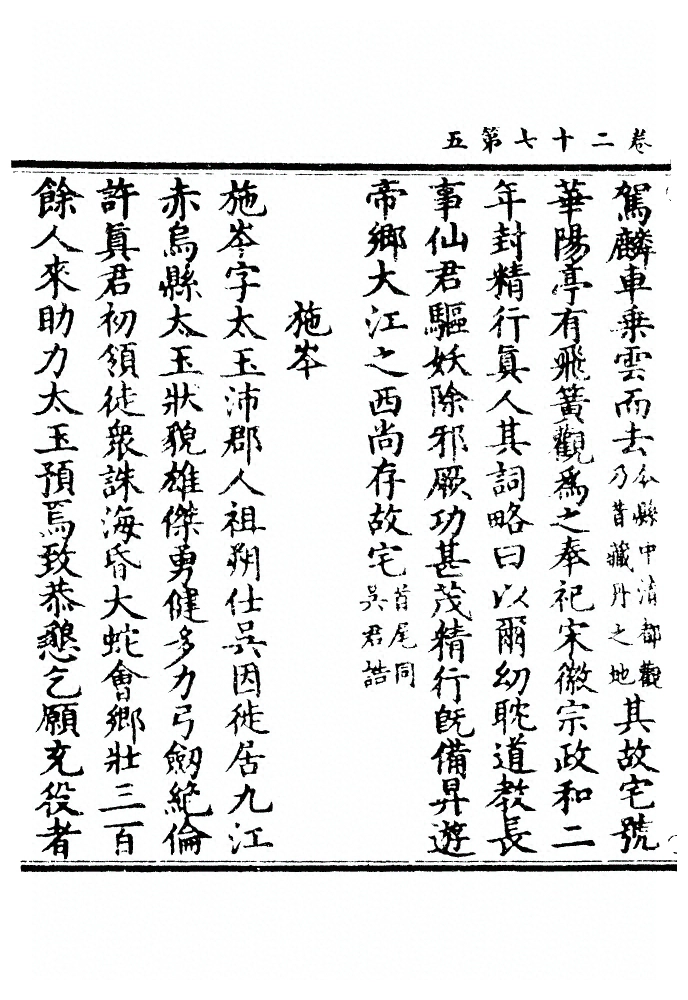 卷二十七第五
駕麟車乗雲而去今縣中清都觀乃昔藏丹之地其故宅號
華陽亭有飛簧觀為之奉祀宋徽宗政和二
年封精行眞人其詞略曰以爾幼耽道教長
事仙君驅妖除邪厥功甚茂精行旣備昇遊
帝鄉大江之西尚存故宅首尾同吳君誥
施岑
施岑字太玉沛郡人祖朔仕吳因徙居九江
赤烏縣太玉狀貌雄傑勇健多力弓劒絶倫
許眞君初領徒衆誅海昏大蛇會鄉壯三百
餘人來助力太玉預焉致恭懇乞願充役者